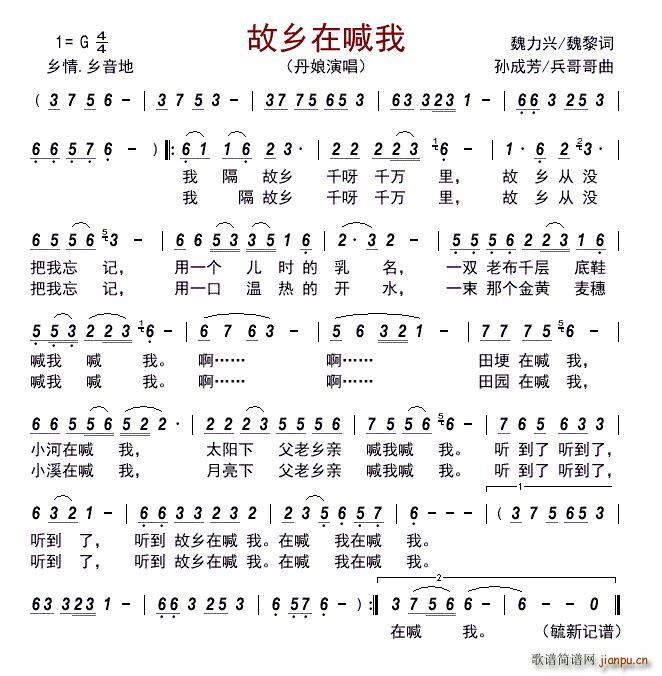 故乡在喊我
1= G 4/4
魏力兴/魏黎词
乡情.乡音地
（丹娘演唱）
孙成芳/兵哥哥曲
( 3 7 5 6 | 3 7 5 3 - | 37 75 65 3 | 63 323 1 - | 66 3 25 3 |
66 57 6 - ) ‖: 61 16 2 3· | 22 223 1 6 - | 1· 6 2 3· |
我 隔 故乡 千呀 千万 里， 故 乡 从 没
我 隔 故乡 千呀 千万 里， 故 乡 从 没
65 56 5 3 - | 66 53 35 16 | 2·3 2 - | 55 56 223 16 |
把我 忘 记， 用一 个 儿 时 的 乳 名， 一双 老布 千层 底鞋
把我 忘 记， 用一 口 温 热 的 开 水， 一束 那个 金黄 麦穗
553 223 1 6 - | 6 7 63 | 5 6 32 1 | 77 75 6 - |
喊我 喊 我。 啊…… 啊…… 田埂 在喊 我，
喊我 喊 我。 啊…… 啊…… 田园 在喊 我，
66 556 522 · | 22 23 55 56 | 75 56 5 6 - | 7 65 63 3 |
小河 在喊 我， 太阳下 父老乡亲 喊我喊 我。 听 到了 听到了，
小溪 在喊 我， 月亮下 父老乡亲 喊我喊 我。 听 到了 听到了，
63 2 1 - | 66 33 23 2 | 66 12 6 57 | 6 - - - | ( 37 56 53 |
听到 了， 听到 故乡在喊 我。在喊 我在喊 我。
听到 了， 听到 故乡在喊 我。在喊 我在喊 我。
63 323 1 - | 66 3 25 3 | 6 57 6 - ) :‖ 3 756 6 - | 6 - - 0 ‖
在喊 我。 （毓新记谱）
歌谱简谱网
jianpu.cn